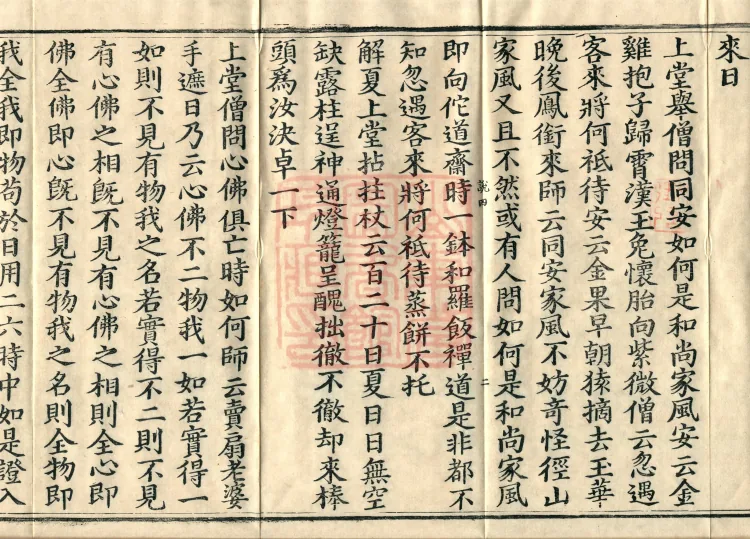 來日
上堂舉僧問同安如何是和尚家風安云金
雞抱子歸霄漢玉兔懷胎向紫微僧云忽遇
客來將何祗待安云金果早朝猿摘去玉華
晚後鳳銜來師云同安家風不妨奇怪徑山
家風又且不然或有人問如何是和尚家風
即向佗道齋時一鉢和羅飯禪道是非都不
知忽遇客來將何祗待蒸餅不托
解夏上堂拈拄杖云百二十日夏日日無空
缺露柱逞神通燈籠呈醜拙徹不徹却來棒
頭爲汝決卓一下
上堂僧問心佛俱亡時如何師云賣扇老婆
手遮日乃云心佛不二物我一如若實得一
如則不見有物我之名若實得不二則不見
有心佛之相旣不見有心佛之相則全心即
佛全佛即心旣不見有物我之名則全物即
我全我即物苟於日用二六時中如是證入